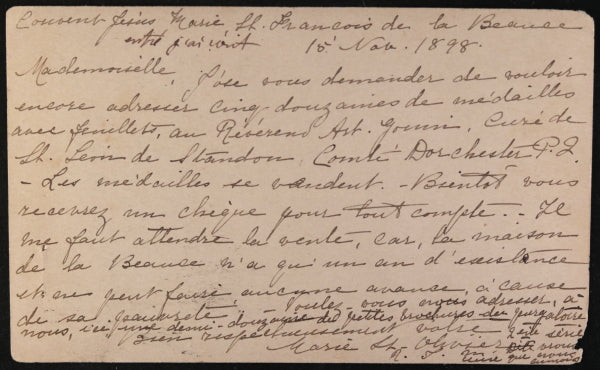 Couvent Jésus Marie St. François de la Beauce
15 Nov. 1898.
Mademoiselle, J'ose vous demander de vouloir
encore adresser cinq douzaines de médailles
avec feuillets, au Révérend Art. Gouin, Curé de
St. Léon de Standon, Comté Dorchester P.Q.
- Les médailles se vendent. - Bientôt vous
recevrez un chèque pour tout compte. - Il
me faut attendre la vente, car, la maison
de la Beauce n'a qu'un an d'existence
et ne peut faire aucune avance, à cause
de sa pauvreté. Voulez-vous nous adresser, à
nous, ici une demi-douzaine des petites brochures du purgatoire
Bien respectueusement votre
Marie St. Olivier
R. J. M.